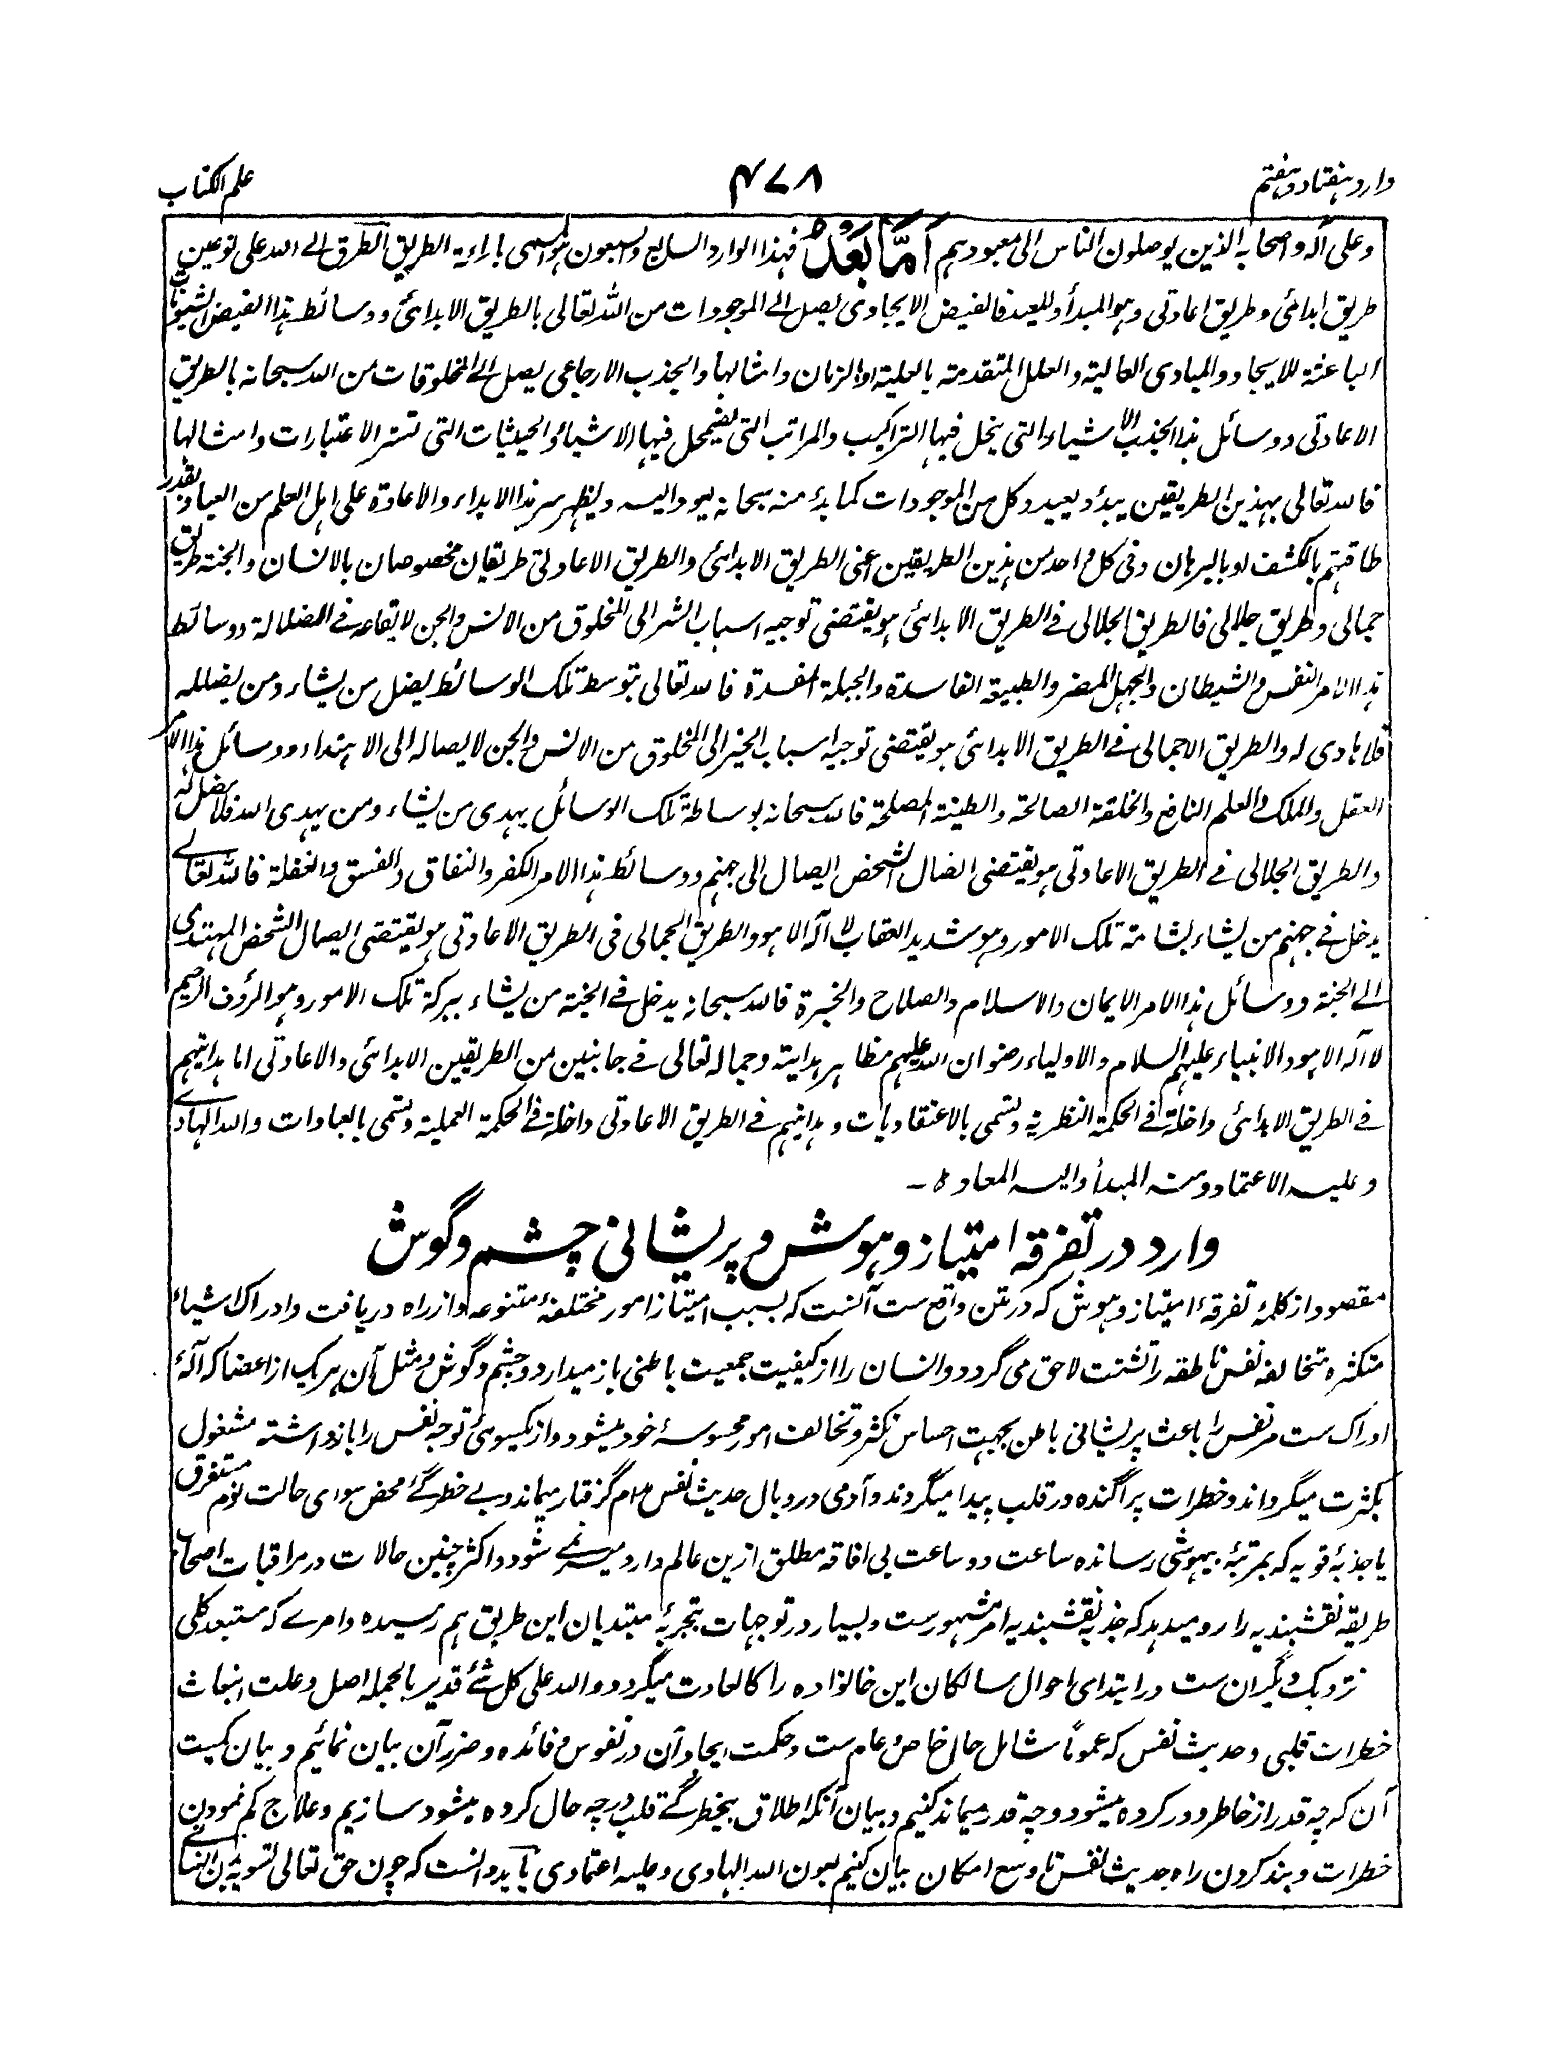 وارد ہفتاد و ہفتم
۴۷۸
علم الکتاب
وعلی آله واصحابه الذین یوصلون الناس الی معبودہم اَمَّا بَعْدُ فہذا الوارد السابع والسبعون ہو المسمی باراءة الطریق الطرق الی الله علی نوعین
طریق ابدائی وطریق اعادتی وہو المبدأ والمعید فالفیض الایجادی یصل الی الموجودات من الله تعالی بالطریق الابدائی ووسائط ہذا الفیض الشیونات
الباعثة للایجاد والمبادی العالیة والعلل المتقدمة بالعلیة او الزمان وامثالها والجذب الارجاعی یصل الی المخلوقات من الله سبحانه بالطریق
الاعادتی ووسائل ہذا الجذب الاشیاء التی ینحل فیہا التراکیب والمراتب التی یضمحل فیہا الاشیاء والحیثیات التی تستر الاعتبارات وامثالها
فالله تعالی بہذین الطریقین یبدأ ویعید وکل من الموجودات کما بدأ منه سبحانه یعود الیه ویظہر سر ہذا الابداء والاعادة علی اہل العلم من العباد بقدر
طاقتہم بالکشف او بالبرہان وفی کل واحد من ہذین الطریقین اعنی الطریق الابدائی والطریق الاعادتی طریقان مخصوصان بالانسان والجنة طریق
جمالی وطریق جلالی فالطریق الجلالی فی الطریق الابدائی ہو یقتضی توجیه اسباب الشر الی المخلوق من الانس والجن لایقاعه فی الضلالة ووسائط
ہذا الامر النفس والشیطان والجہل المضر والطبیعة الفاسدة والجبلة المفسدة فالله تعالی بتوسط تلک الوسائط یضل من یشاء ومن یضلله
فلا ہادی له والطریق الاجمالی فی الطریق الابدائی ہو یقتضی توجیه اسباب الخیر الی المخلوق من الانس والجن لایصاله الی الاہتداء ووسائل ہذا الامر
العقل والملک والعلم النافع والخلقة الصالحة والطینة المصلحة فالله سبحانه بوساطة تلک الوسائل یہدی من یشاء ومن یہدی الله فلا مضل له
والطریق الجلالی فی الطریق الاعادتی ہو یقتضی ایصال الشخص الضال الی جہنم ووسائط ہذا الامر الکفر والنفاق والفسق والغفلة فالله تعالی
یدخل فی جہنم من یشاء بشامة تلک الامور وہو شدید العقاب لا آله الا ہو والطریق الجمالی فی الطریق الاعادتی ہو یقتضی ایصال الشخص المہتدی
الی الجنة ووسائل ہذا الامر الایمان والاسلام والصلاح والخیرة فالله سبحانه یدخل فی الجنة من یشاء ببرکة تلک الامور وہو الرؤف الرحیم
لا آله الا ہو والانبیاء علیہم السلام والاولیاء رضوان الله علیہم مظاہر ہدایته وجماله تعالی فی جانبین من الطریقین الابدائی والاعادتی اما ہدایتہم
فی الطریق الابدائی داخلة فی الحکمة النظریة وتسمی بالاعتقادیات وہدایتہم فی الطریق الاعادتی داخلة فی الحکمة العملیة وتسمی بالعبادات والله الہادی
وعلیه الاعتماد ومنه المبدأ والیه المعاد ہ۔
وارد در تفرقه امتیاز و ہوش و پریشانی چشم و گوش
مقصود از کلمۂ تفرقۂ امتیاز و ہوش که در متن واقع ست آنست که بسبب امتیاز امور مختلفۂ متنوعه و از راه دریافت و ادراک اشیاء
متکثره متخالفه نفس ناطقه را تشتت لاحق می گردد و انسان را از کیفیت جمعیت باطنی باز میدارد و چشم و گوش و مثل آن ہریک از اعضا که آلۂ
ادراک ست مر نفس را باعث پریشانی باطن بجہت احساس تکثر و تخالف امور محسوسۂ خود میشود و از یکسوئی توجه نفس را باز داشته مشغول
بکثرت میگرداند و خطرات پراگنده در قلب پیدا میگردند و آدمی در وبال حدیث نفس مدام گرفتار میماند و بے خطرگئے محض سوای حالت نوم مستغرق
یا جذبۂ قویه که بمرتبۂ بیہوشی رسانده ساعت دو ساعت بی افاقه مطلق ازین عالم دارد میسر نمے شود و اکثر چنین حالات در مراقبات اصحاب
طریقه نقشبندیه را رو میدہد که جذبۂ نقشبندیه امر مشہورست و بسیار در توجہات بتجربۂ مبتدیان این طریق ہم رسیده و امرے که مستبعد کلی
نزدیک دیگران ست در ابتدای احوال سالکان این خانواده را کالعادت میگردد والله علی کل شئے قدیر بالجمله اصل و علت انبعاث
خطرات قلبی و حدیث نفس که عموماً شامل حال خاص و عام ست و حکمت ایجاد آن در نفوس و فائده و ضرر آن بیان نمائیم و بیان کمیت
آن که چه قدر از خاطر دور کرده میشود و چه قدر میماند کنیم و بیان آنکه اطلاق بیخطرگے قلب در چه حال کرده میشود سازیم و علاج کم نمودن
خطرات و بند کردن راه حدیث نفس تا وسع امکان بیان کنیم بعون الله الہادی وعلیه اعتمادی باید دانست که چون حق تعالی تسویۂ بدن انسانی